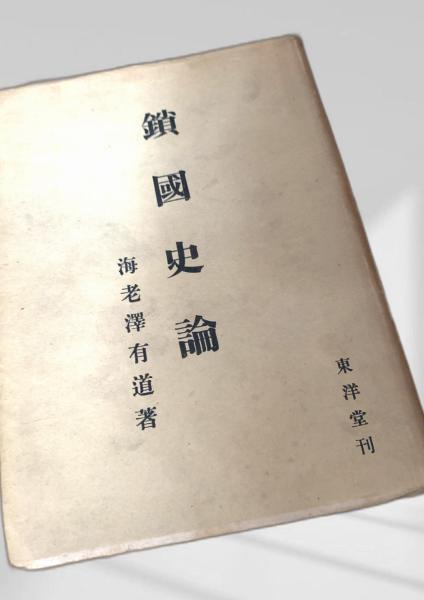 鎖國史論
海老澤有道著
東洋堂刊